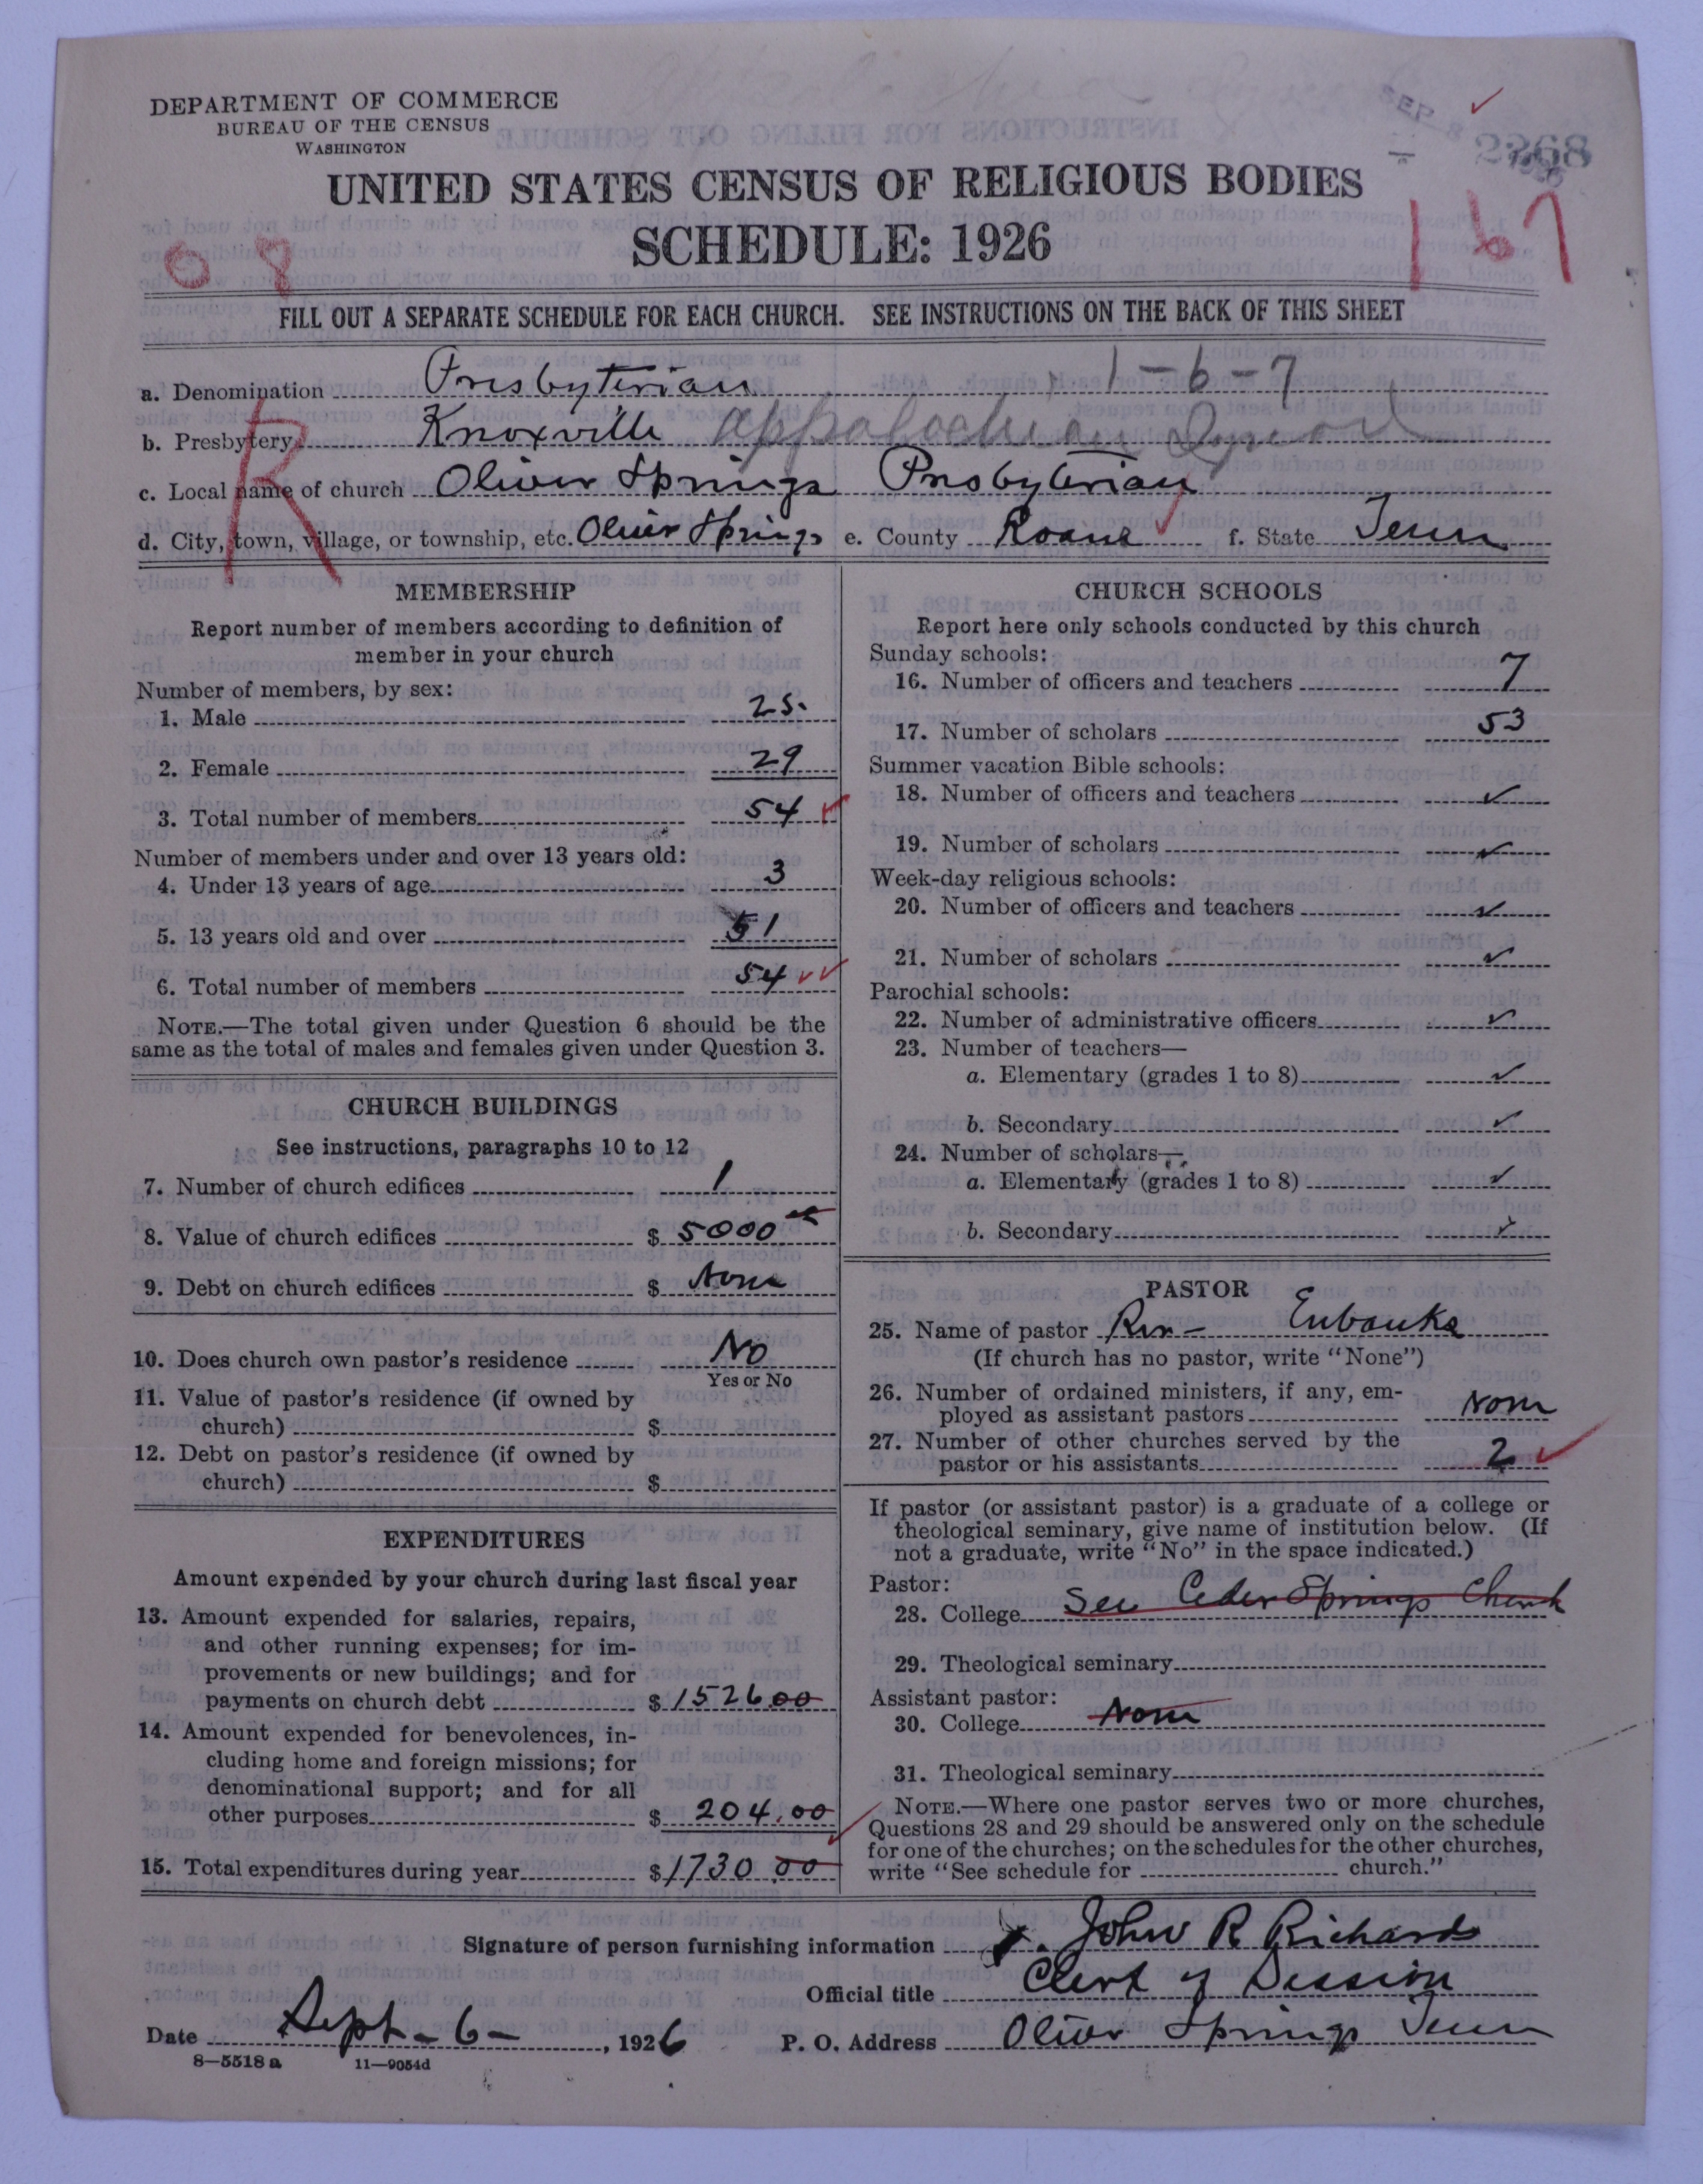 DEPARTMENT OF COMMERCE
BUREAU OF THE CENSUS
WASHINGTON
SEP 8
2268
UNITED STATES CENSUS OF RELIGIOUS BODIES
SCHEDULE: 1926
0 8
167
FILL OUT A SEPARATE SCHEDULE FOR EACH CHURCH. SEE INSTRUCTIONS ON THE BACK OF THIS SHEET
a. Denomination Presbyterian 1-6-7
b. Presbytery Knoxville Appalachian Synod
R
c. Local name of church Oliver Springs Presbyterian
d. City, town, village, or township, etc. Oliver Springs e. County Roane f. State Tenn
MEMBERSHIP
Report number of members according to definition of
member in your church
Number of members, by sex:
1. Male 25.
2. Female 29
3. Total number of members 54
Number of members under and over 13 years old:
4. Under 13 years of age 3
5. 13 years old and over 51
6. Total number of members 54
NOTE.—The total given under Question 6 should be the
same as the total of males and females given under Question 3.
CHURCH BUILDINGS
See instructions, paragraphs 10 to 12
7. Number of church edifices 1
8. Value of church edifices $ 5000
9. Debt on church edifices $ None
10. Does church own pastor's residence No
Yes or No
11. Value of pastor's residence (if owned by
church) $
12. Debt on pastor's residence (if owned by
church) $
EXPENDITURES
Amount expended by your church during last fiscal year
13. Amount expended for salaries, repairs,
and other running expenses; for im-
provements or new buildings; and for
payments on church debt $ 1526 00
14. Amount expended for benevolences, in-
cluding home and foreign missions; for
denominational support; and for all
other purposes $ 204.00
15. Total expenditures during year $ 1730 00
CHURCH SCHOOLS
Report here only schools conducted by this church
Sunday schools:
16. Number of officers and teachers 7
17. Number of scholars 53
Summer vacation Bible schools:
18. Number of officers and teachers ✓
19. Number of scholars ✓
Week-day religious schools:
20. Number of officers and teachers ✓
21. Number of scholars ✓
Parochial schools:
22. Number of administrative officers ✓
23. Number of teachers—
a. Elementary (grades 1 to 8) ✓
b. Secondary ✓
24. Number of scholars—
a. Elementary (grades 1 to 8) ✓
b. Secondary ✓
PASTOR
25. Name of pastor Rev - Eubanks
(If church has no pastor, write "None")
26. Number of ordained ministers, if any, em-
ployed as assistant pastors None
27. Number of other churches served by the
pastor or his assistants 2
If pastor (or assistant pastor) is a graduate of a college or
theological seminary, give name of institution below. (If
not a graduate, write "No" in the space indicated.)
Pastor:
28. College See Ceder Springs Church
29. Theological seminary
Assistant pastor:
30. College None
31. Theological seminary
NOTE.—Where one pastor serves two or more churches,
Questions 28 and 29 should be answered only on the schedule
for one of the churches; on the schedules for the other churches,
write "See schedule for church."
Signature of person furnishing information John R Richards
Official title Clerk of Session
Date Sept - 6 - , 1926 P. O. Address Oliver Springs Tenn
8—5518 a 11—9054d